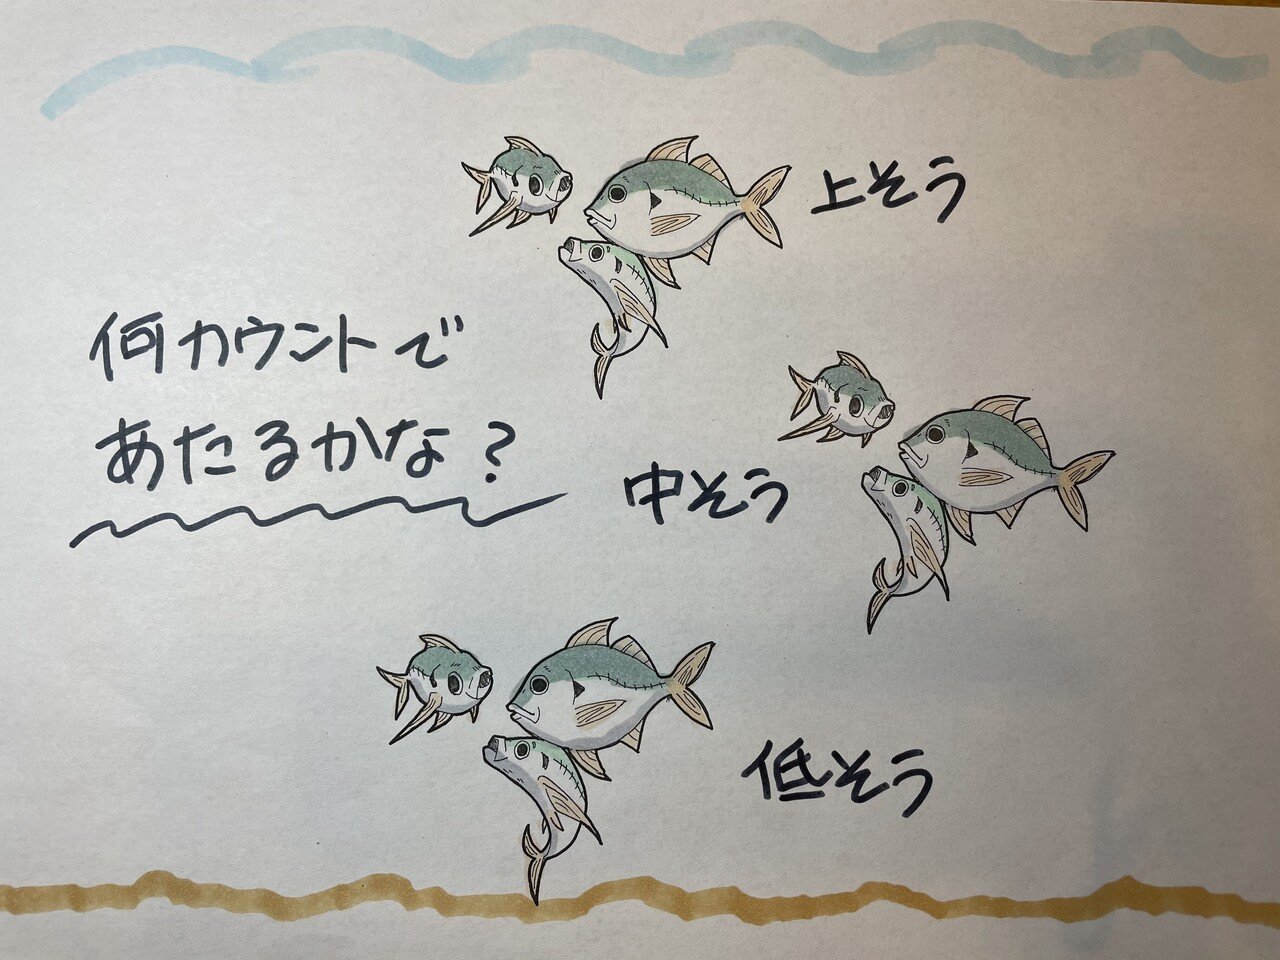 上そう
何カウントで
あたるかな？
中そう
低そう